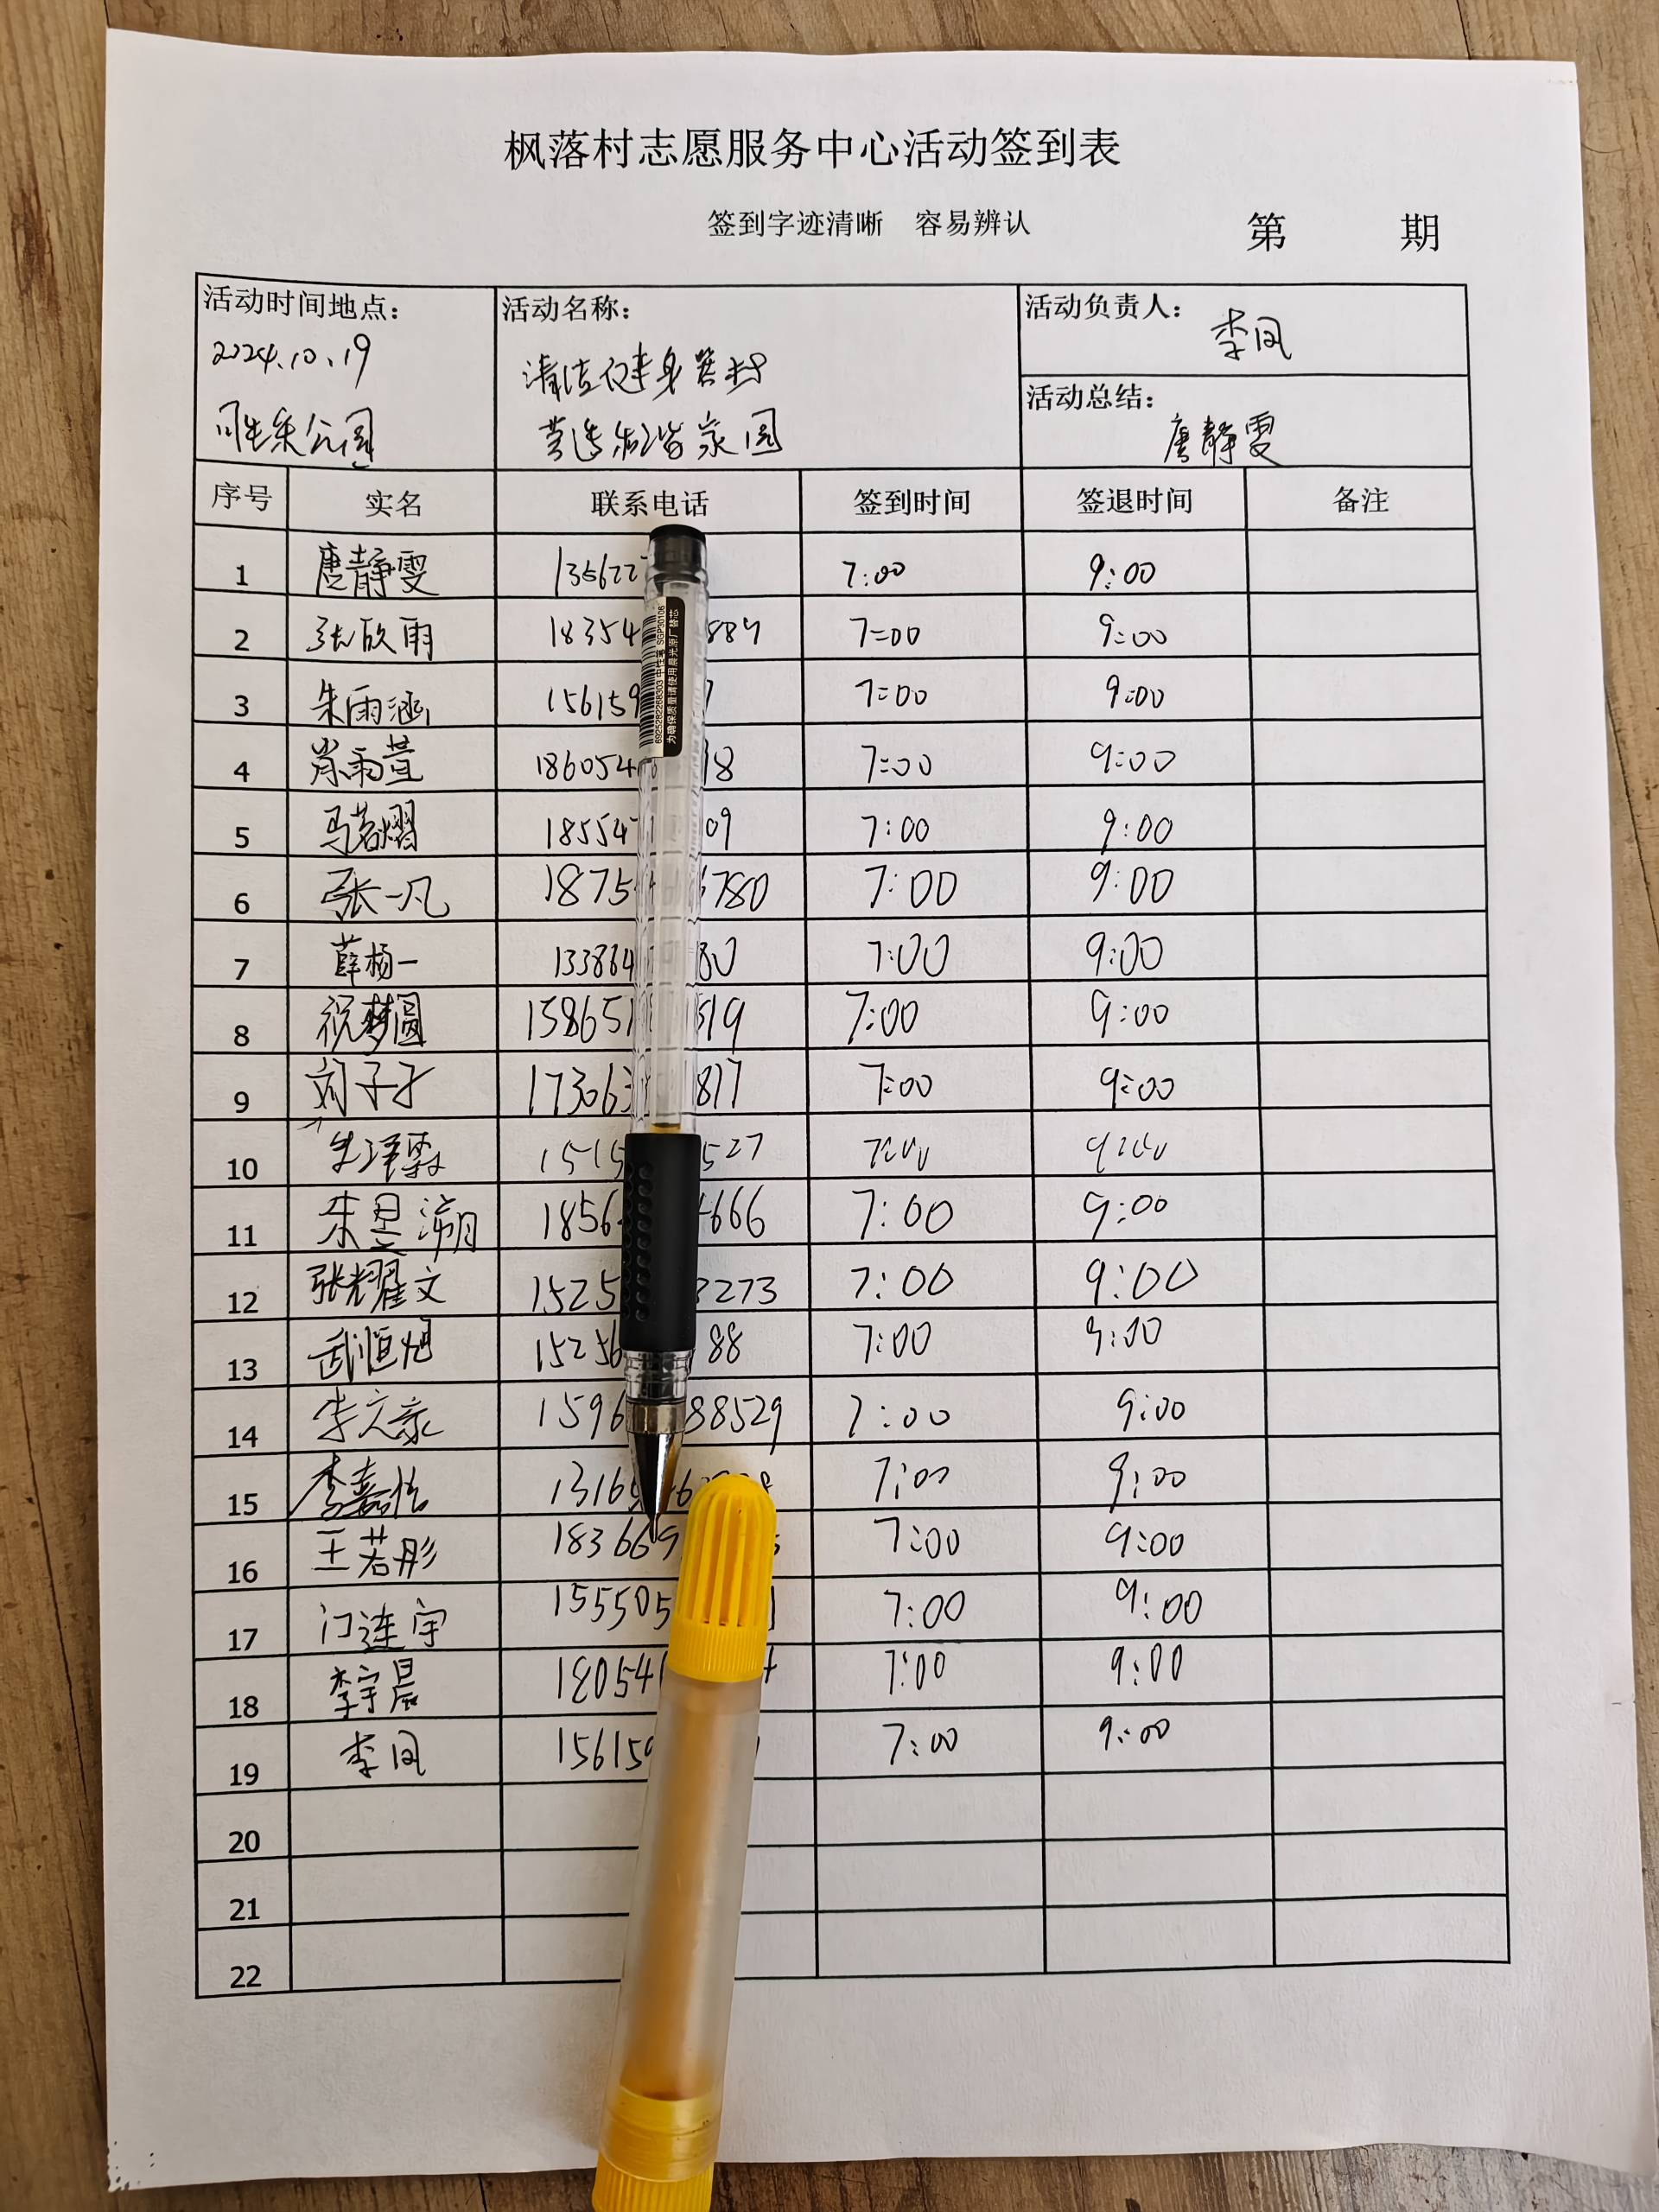 枫落村志愿服务中心活动签到表
签到字迹清晰 容易辨认
第 期
活动时间地点：
2024.10.19
公园
活动名称：
清洁健身器材
营造和谐家园
活动负责人：
李凤
活动总结：
唐静雯
序号 实名 联系电话 签到时间 签退时间 备注
1 唐静雯 135622 7:00 9:00
2 张欣雨 18354 889 7:00 9:00
3 朱雨涵 156159 7 7:00 9:00
4 肖雨萱 186054 18 7:00 9:00
5 马若熠 18554 09 7:00 9:00
6 张一凡 1875 780 7:00 9:00
7 薛杨一 133864 80 7:00 9:00
8 祝梦圆 158651 519 7:00 9:00
9 刘子 173063 817 7:00 9:00
10 泽霖 1515 527 7:00 9:00
11 朱昱溯 1856 666 7:00 9:00
12 张耀文 1525 3273 7:00 9:00
13 武恒旭 15256 88 7:00 9:00
14 李立豪 1596 88529 7:00 9:00
15 李嘉怡 1316 7:00 9:00
16 王若彤 183669 7:00 9:00
17 门连宇 155505 7:00 9:00
18 李宇晨 18054 7:00 9:00
19 李凤 15615 7:00 9:00
20
21
22
6925282268303 中性笔 SGP30106
为确保质量请使用晨光原厂替芯